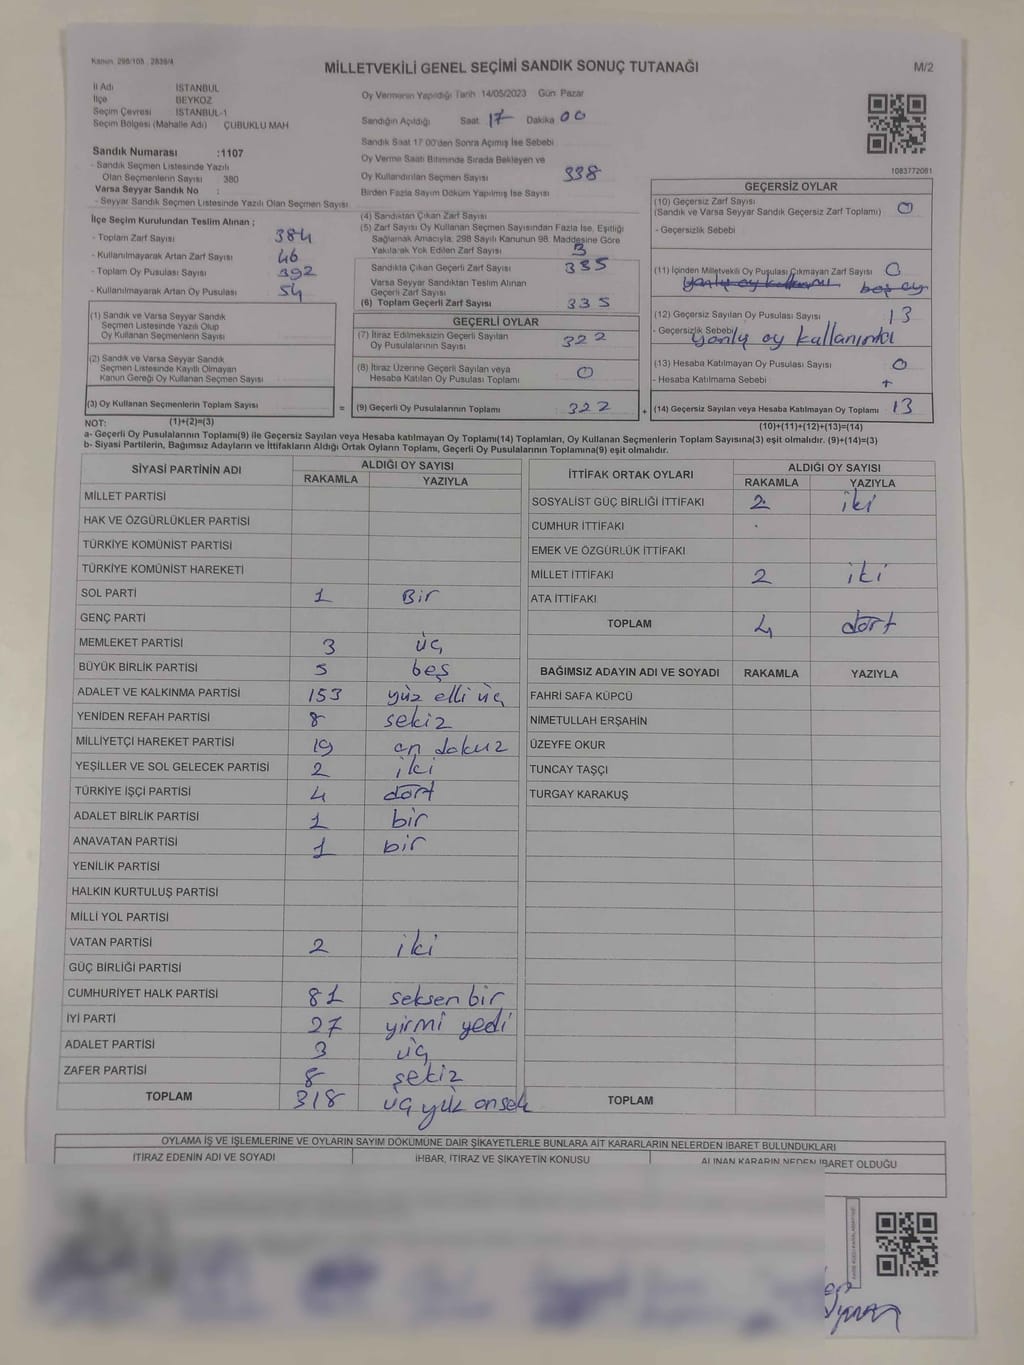 Kanun: 298/105 , 2839/4
MİLLETVEKİLİ GENEL SEÇİMİ SANDIK SONUÇ TUTANAĞI
M/2
İl Adı İSTANBUL
İlçe BEYKOZ
Seçim Çevresi İSTANBUL-1
Seçim Bölgesi (Mahalle Adı) ÇUBUKLU MAH
Sandık Numarası :1107
- Sandık Seçmen Listesinde Yazılı
Olan Seçmenlerin Sayısı 380
Varsa Seyyar Sandık No :
- Seyyar Sandık Seçmen Listesinde Yazılı Olan Seçmen Sayısı
Oy Vermenin Yapıldığı Tarih 14/05/2023 Gün: Pazar
Sandığın Açıldığı Saat 17 Dakika 00
Sandık Saat 17.00'den Sonra Açımış İse Sebebi
Oy Verme Saati Bitiminde Sırada Bekleyen ve
Oy Kullandırılan Seçmen Sayısı 338
Birden Fazla Sayım Döküm Yapılmış İse Sayısı
1083772081
İlçe Seçim Kurulundan Teslim Alınan ;
- Toplam Zarf Sayısı 384
- Kullanılmayarak Artan Zarf Sayısı 46
- Toplam Oy Pusulası Sayısı 392
- Kullanılmayarak Artan Oy Pusulası 54
(1) Sandık ve Varsa Seyyar Sandık
Seçmen Listesinde Yazılı Olup
Oy Kullanan Seçmenlerin Sayısı
(2) Sandık ve Varsa Seyyar Sandık
Seçmen Listesinde Kayıtlı Olmayan
Kanun Gereği Oy Kullanan Seçmen Sayısı
(3) Oy Kullanan Seçmenlerin Toplam Sayısı
(1)+(2)=(3)
(4) Sandıktan Çıkan Zarf Sayısı
(5) Zarf Sayısı Oy Kullanan Seçmen Sayısından Fazla İse, Eşitliği
Sağlamak Amacıyla; 298 Sayılı Kanunun 98. Maddesine Göre
Yakılarak Yok Edilen Zarf Sayısı 3
Sandıkta Çıkan Geçerli Zarf Sayısı 335
Varsa Seyyar Sandıktan Teslim Alınan
Geçerli Zarf Sayısı
(6) Toplam Geçerli Zarf Sayısı 335
GEÇERLİ OYLAR
(7) İtiraz Edilmeksizin Geçerli Sayılan
Oy Pusulalarının Sayısı 322
(8) İtiraz Üzerine Geçerli Sayılan veya
Hesaba Katılan Oy Pusulası Toplamı 0
= (9) Geçerli Oy Pusulalarının Toplamı 322
GEÇERSİZ OYLAR
(10) Geçersiz Zarf Sayısı
(Sandık ve Varsa Seyyar Sandık Geçersiz Zarf Toplamı) 0
- Geçersizlik Sebebi
(11) İçinden Milletvekili Oy Pusulası Çıkmayan Zarf Sayısı 0
(12) Geçersiz Sayılan Oy Pusulası Sayısı 13
- Geçersizlik Sebebi yanlış oy kullanımı
(13) Hesaba Katılmayan Oy Pusulası Sayısı 0
- Hesaba Katılmama Sebebi +
+ (14) Geçersiz Sayılan veya Hesaba Katılmayan Oy Toplamı 13
(10)+(11)+(12)+(13)=(14)
NOT:
a- Geçerli Oy Pusulalarının Toplamı(9) ile Geçersiz Sayılan veya Hesaba katılmayan Oy Toplamı(14) Toplamları, Oy Kullanan Seçmenlerin Toplam Sayısına(3) eşit olmalıdır. (9)+(14)=(3)
b- Siyasi Partilerin, Bağımsız Adayların ve İttifakların Aldığı Ortak Oyların Toplamı, Geçerli Oy Pusulalarının Toplamına(9) eşit olmalıdır.
SİYASİ PARTİNİN ADI ALDIĞI OY SAYISI
RAKAMLA YAZIYLA
MİLLET PARTİSİ
HAK VE ÖZGÜRLÜKLER PARTİSİ
TÜRKİYE KOMÜNİST PARTİSİ
TÜRKİYE KOMÜNİST HAREKETİ
SOL PARTİ 1 Bir
GENÇ PARTİ
MEMLEKET PARTİSİ 3 üç
BÜYÜK BİRLİK PARTİSİ 5 beş
ADALET VE KALKINMA PARTİSİ 153 yüz elli üç
YENİDEN REFAH PARTİSİ 8 sekiz
MİLLİYETÇİ HAREKET PARTİSİ 19 on dokuz
YEŞİLLER VE SOL GELECEK PARTİSİ 2 iki
TÜRKİYE İŞÇİ PARTİSİ 4 dört
ADALET BİRLİK PARTİSİ 1 bir
ANAVATAN PARTİSİ 1 bir
YENİLİK PARTİSİ
HALKIN KURTULUŞ PARTİSİ
MİLLİ YOL PARTİSİ
VATAN PARTİSİ 2 iki
GÜÇ BİRLİĞİ PARTİSİ
CUMHURİYET HALK PARTİSİ 81 seksen bir
İYİ PARTİ 27 yirmi yedi
ADALET PARTİSİ 3 üç
ZAFER PARTİSİ 8 sekiz
TOPLAM 318 üç yük onsek
İTTİFAK ORTAK OYLARI ALDIĞI OY SAYISI
RAKAMLA YAZIYLA
SOSYALİST GÜÇ BİRLİĞİ İTTİFAKI 2 iki
CUMHUR İTTİFAKI
EMEK VE ÖZGÜRLÜK İTTİFAKI
MİLLET İTTİFAKI 2 iki
ATA İTTİFAKI
TOPLAM 4 dört
BAĞIMSIZ ADAYIN ADI VE SOYADI RAKAMLA YAZIYLA
FAHRİ SAFA KÜPCÜ
NİMETULLAH ERŞAHİN
ÜZEYFE OKUR
TUNCAY TAŞÇI
TURGAY KARAKUŞ
TOPLAM
OYLAMA İŞ VE İŞLEMLERİNE VE OYLARIN SAYIM DÖKÜMÜNE DAİR ŞİKAYETLERLE BUNLARA AİT KARARLARIN NELERDEN İBARET BULUNDUKLARI
İTİRAZ EDENİN ADI VE SOYADI İHBAR, İTİRAZ VE ŞİKAYETİN KONUSU ALINAN KARARIN NEDEN İBARET OLDUĞU